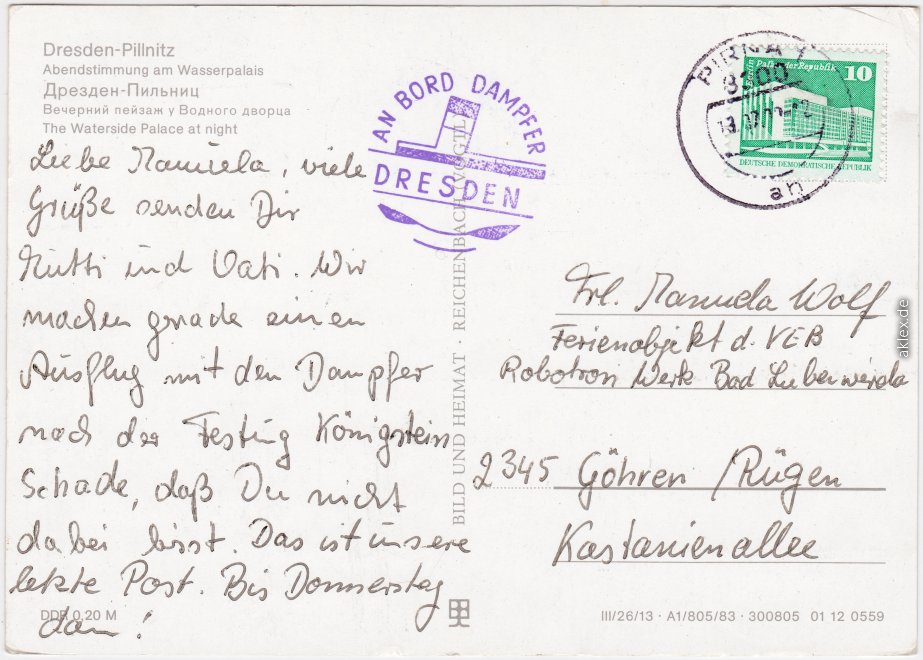 Dresden-Pillnitz
Abendstimmung am Wasserpalais
Дрезден-Пильниц
Вечерний пейзаж у Водного дворца
The Waterside Palace at night
Liebe Manuela, viele
Grüße senden Dir
Mutti und Vati. Wir
machen gerade einen
Ausflug mit den Dampfer
nach der Festung Königstein
Schade, daß Du nicht
dabei bist. Das ist unsere
letzte Post. Bis Donnerstag
dann!
DDR 0,20 M
AN BORD DAMPFER
DRESDEN
BILD UND HEIMAT · REICHENBACH (VOGTL)
PIRNA 1
8300
ah
Berlin, Palast der Republik
10
DEUTSCHE DEMOKRATISCHE REPUBLIK
Frl. Manuela Wolf
Ferienobjekt d. VEB
Robotron Werk Bad Liebenwerda
2345 Göhren /Rügen
Kastanienallee
III/26/13 · A1/805/83 · 300805 01 12 0559
aklex.de